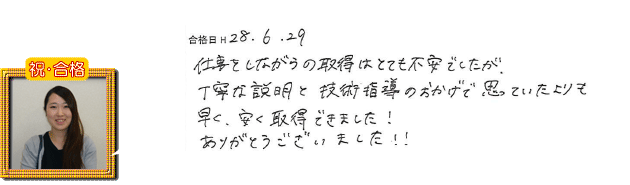 合格日 H 28.6.29
祝・合格
仕事をしながらの取得はとても不安でしたが、
丁寧な説明と技術指導のおかげで思っていたよりも
早く、安く取得できました！
ありがとうございました！！